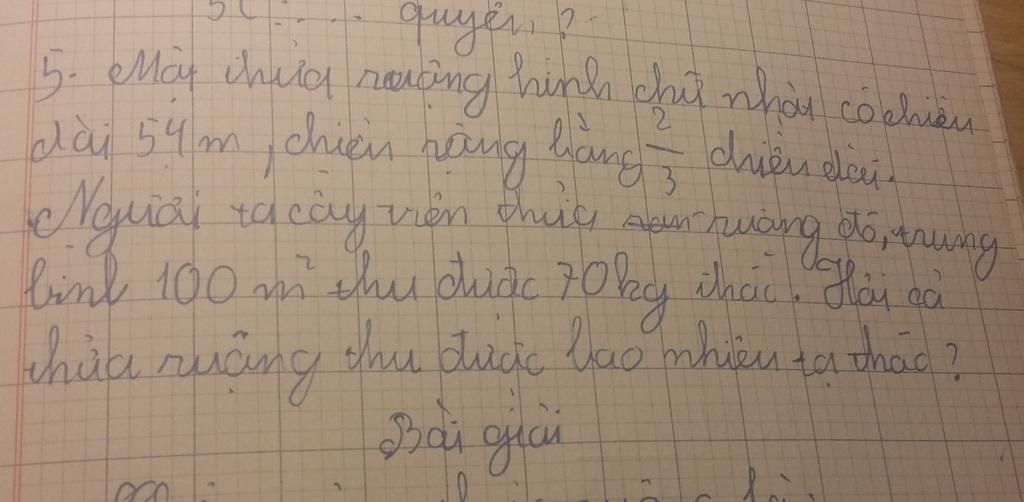 quyển ?
5. Một thửa ruộng hình chữ nhật có chiều
dài 54 m, chiều rộng bằng 2/3 chiều dài.
Người ta cấy trên thửa ruộng đó, trung
bình 100 m² thu được 70kg thóc. Hỏi cả
thửa ruộng thu được bao nhiêu tạ thóc?
Bài giải